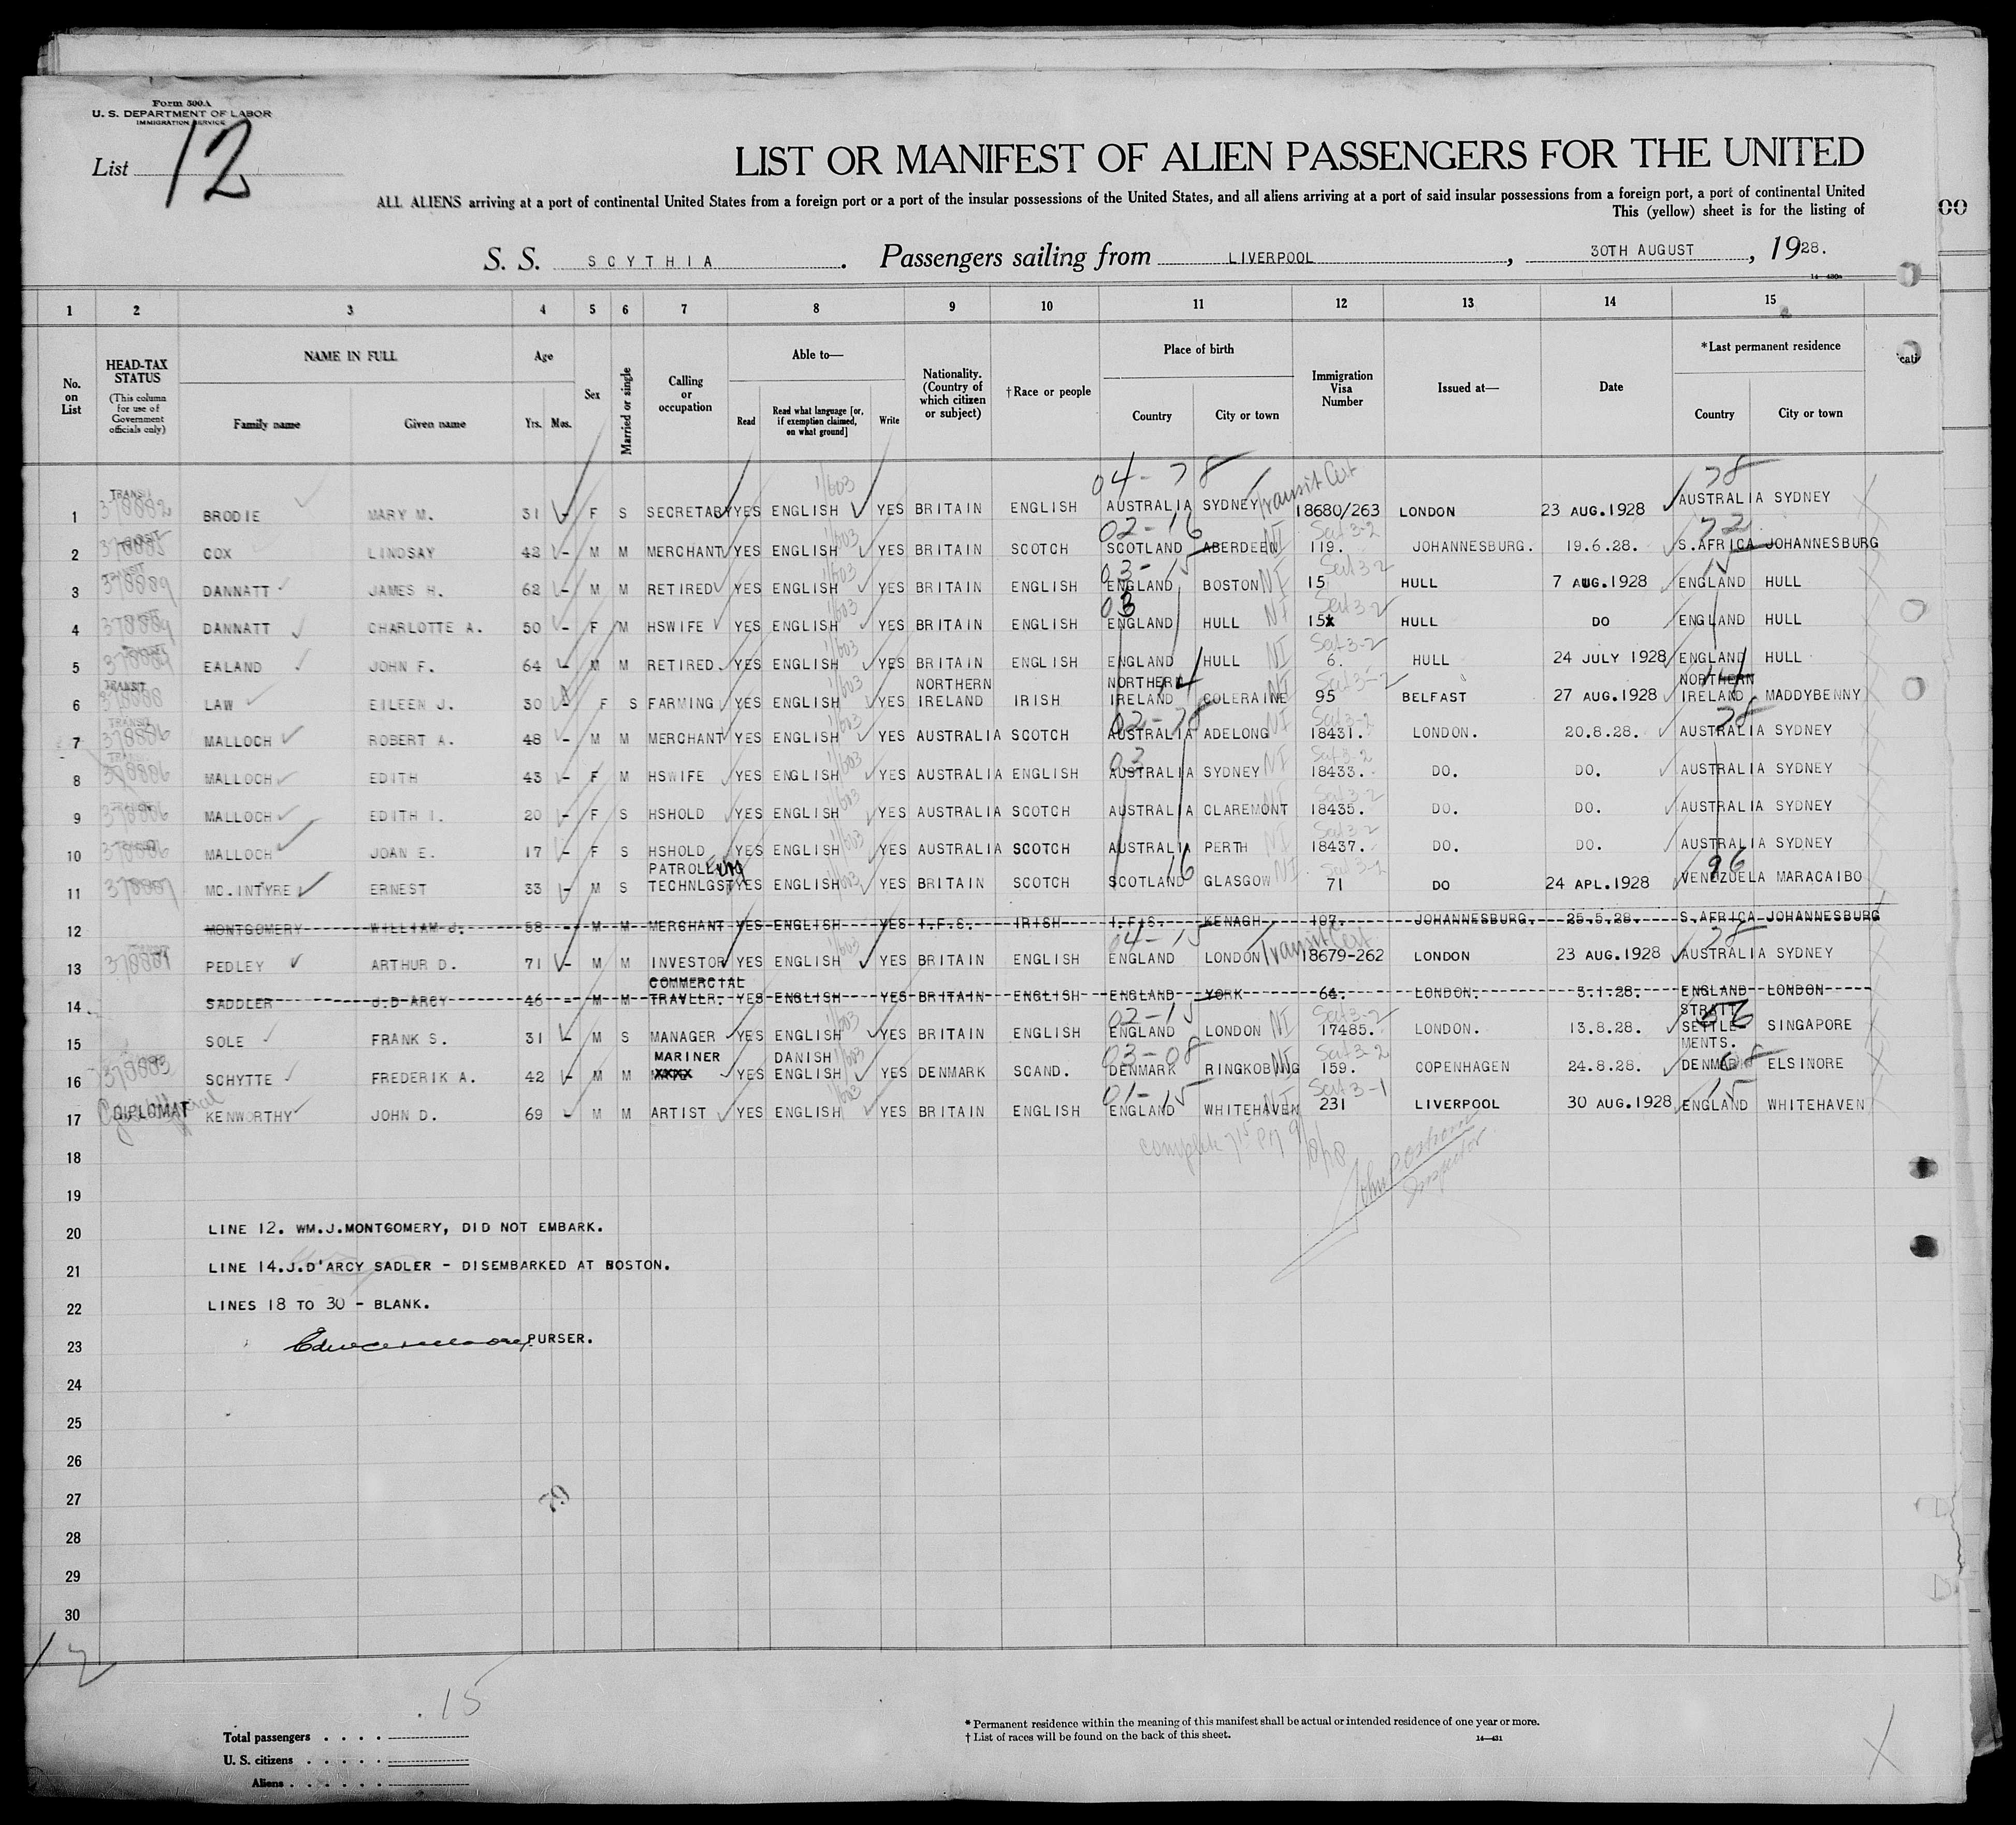 Form 500A
U. S. DEPARTMENT OF LABOR
IMMIGRATION SERVICE
List 12
LIST OR MANIFEST OF ALIEN PASSENGERS FOR THE UNITED
ALL ALIENS arriving at a port of continental United States from a foreign port or a port of the insular possessions of the United States, and all aliens arriving at a port of said insular possessions from a foreign port, a port of continental United
This (yellow) sheet is for the listing of
00
S. S. SCYTHIA. Passengers sailing from LIVERPOOL, 30TH AUGUST, 1928.
14-430a
1 2 3 4 5 6 7 8 9 10 11 12 13 14 15
No. on List
HEAD-TAX STATUS
(This column for use of Government officials only)
NAME IN FULL
Family name Given name
Age
Yrs. Mos.
Sex
Married or single
Calling or occupation
Able to—
Read
Read what language [or, if exemption claimed, on what ground]
Write
Nationality. (Country of which citizen or subject)
†Race or people
Place of birth
Country City or town
Immigration Visa Number
Issued at—
Date
*Last permanent residence
Country City or town
04-78 Transit Cert 78
1 TRANSIT 378882 BRODIE MARY M. 31 - F S SECRETARY YES ENGLISH 1/603 YES BRITAIN ENGLISH AUSTRALIA SYDNEY 18680/263 LONDON 23 AUG.1928 AUSTRALIA SYDNEY
02-16 Sect 3-2 72
2 378885 COX LINDSAY 42 - M M MERCHANT YES ENGLISH 1/603 YES BRITAIN SCOTCH SCOTLAND ABERDEEN NI 119. JOHANNESBURG. 19.6.28. S.AFRICA JOHANNESBURG
03-15 Sect 3-2 15
3 TRANSIT 378889 DANNATT JAMES H. 62 - M M RETIRED YES ENGLISH 1/603 YES BRITAIN ENGLISH ENGLAND BOSTON NI 15 HULL 7 AUG.1928 ENGLAND HULL
03 Sect 3-2
4 378889 DANNATT CHARLOTTE A. 50 - F M HSWIFE YES ENGLISH 1/603 YES BRITAIN ENGLISH ENGLAND HULL NI 15X HULL DO ENGLAND HULL
Sect 3-2
5 378889 EALAND JOHN F. 64 - M M RETIRED. YES ENGLISH 1/603 YES BRITAIN ENGLISH ENGLAND HULL NI 6. HULL 24 JULY 1928 ENGLAND HULL
NORTHERN NORTHERN 14 Sect 3-2 NORTHERN 14
6 TRANSIT 378888 LAW EILEEN J. 30 - F S FARMING YES ENGLISH 1/603 YES IRELAND IRISH IRELAND COLERAINE NI 95 BELFAST 27 AUG.1928 IRELAND MADDYBENNY
02-78 Sect 3-2 78
7 TRANSIT 378886 MALLOCH ROBERT A. 48 - M M MERCHANT YES ENGLISH 1/603 YES AUSTRALIA SCOTCH AUSTRALIA ADELONG NI 18431. LONDON. 20.8.28. AUSTRALIA SYDNEY
03 Sect 3-2
8 378886 MALLOCH EDITH 43 - F M HSWIFE YES ENGLISH 1/603 YES AUSTRALIA ENGLISH AUSTRALIA SYDNEY NI 18433. DO. DO. AUSTRALIA SYDNEY
Sect 3-2
9 378886 MALLOCH EDITH I. 20 - F S HSHOLD YES ENGLISH 1/603 YES AUSTRALIA SCOTCH AUSTRALIA CLAREMONT 18435. DO. DO. AUSTRALIA SYDNEY
Sect 3-2
10 378886 MALLOCH JOAN E. 17 - F S HSHOLD YES ENGLISH 1/603 YES AUSTRALIA SCOTCH AUSTRALIA PERTH NI 18437. DO. DO. AUSTRALIA SYDNEY
PATROLEUM 16 Sect 3-2 96
11 378887 MC.INTYRE ERNEST 33 - M S TECHNLGST YES ENGLISH 1/603 YES BRITAIN SCOTCH SCOTLAND GLASGOW NI 71 DO 24 APL.1928 VENEZUELA MARACAIBO
12 MONTGOMERY WILLIAM J. 58 - M M MERCHANT YES ENGLISH YES I.F.S. IRISH I.F.S. KENAGH 107. JOHANNESBURG. 25.5.28. S.AFRICA JOHANNESBURG
04-15 Transit Cert 78
13 TRANSIT 378884 PEDLEY ARTHUR D. 71 - M M INVESTOR YES ENGLISH 1/603 YES BRITAIN ENGLISH ENGLAND LONDON 18679-262 LONDON 23 AUG.1928 AUSTRALIA SYDNEY
COMMERCIAL
14 SADDLER J.D ARCY 46 - M M TRAVLLR. YES ENGLISH YES BRITAIN ENGLISH ENGLAND YORK 64. LONDON. 3.1.28. ENGLAND LONDON
02-15 Sect 3-2 STRAIT 56
15 SOLE FRANK S. 31 - M S MANAGER YES ENGLISH 1/603 YES BRITAIN ENGLISH ENGLAND LONDON NI 17485. LONDON. 13.8.28. SETTLE- SINGAPORE
MENTS.
MARINER DANISH 03-08 Sect 3-2 08
16 378883 SCHYTTE FREDERIK A. 42 - M M XXXX YES ENGLISH 1/603 YES DENMARK SCAND. DENMARK RINGKOBING NI 159. COPENHAGEN 24.8.28. DENMARK ELSINORE
01-15 Sect 3-1 15
17 DIPLOMAT KENWORTHY JOHN D. 69 - M M ARTIST YES ENGLISH 1/603 YES BRITAIN ENGLISH ENGLAND WHITEHAVEN NI 231 LIVERPOOL 30 AUG.1928 ENGLAND WHITEHAVEN
18
19
20 LINE 12. WM.J.MONTGOMERY, DID NOT EMBARK.
21 LINE 14.J.D'ARCY SADLER - DISEMBARKED AT BOSTON.
22 LINES 18 TO 30 - BLANK.
23 PURSER.
24
25
26
27
28
29
30
Inspector
12
15
Total passengers
U. S. citizens
Aliens
* Permanent residence within the meaning of this manifest shall be actual or intended residence of one year or more.
† List of races will be found on the back of this sheet.
14-431